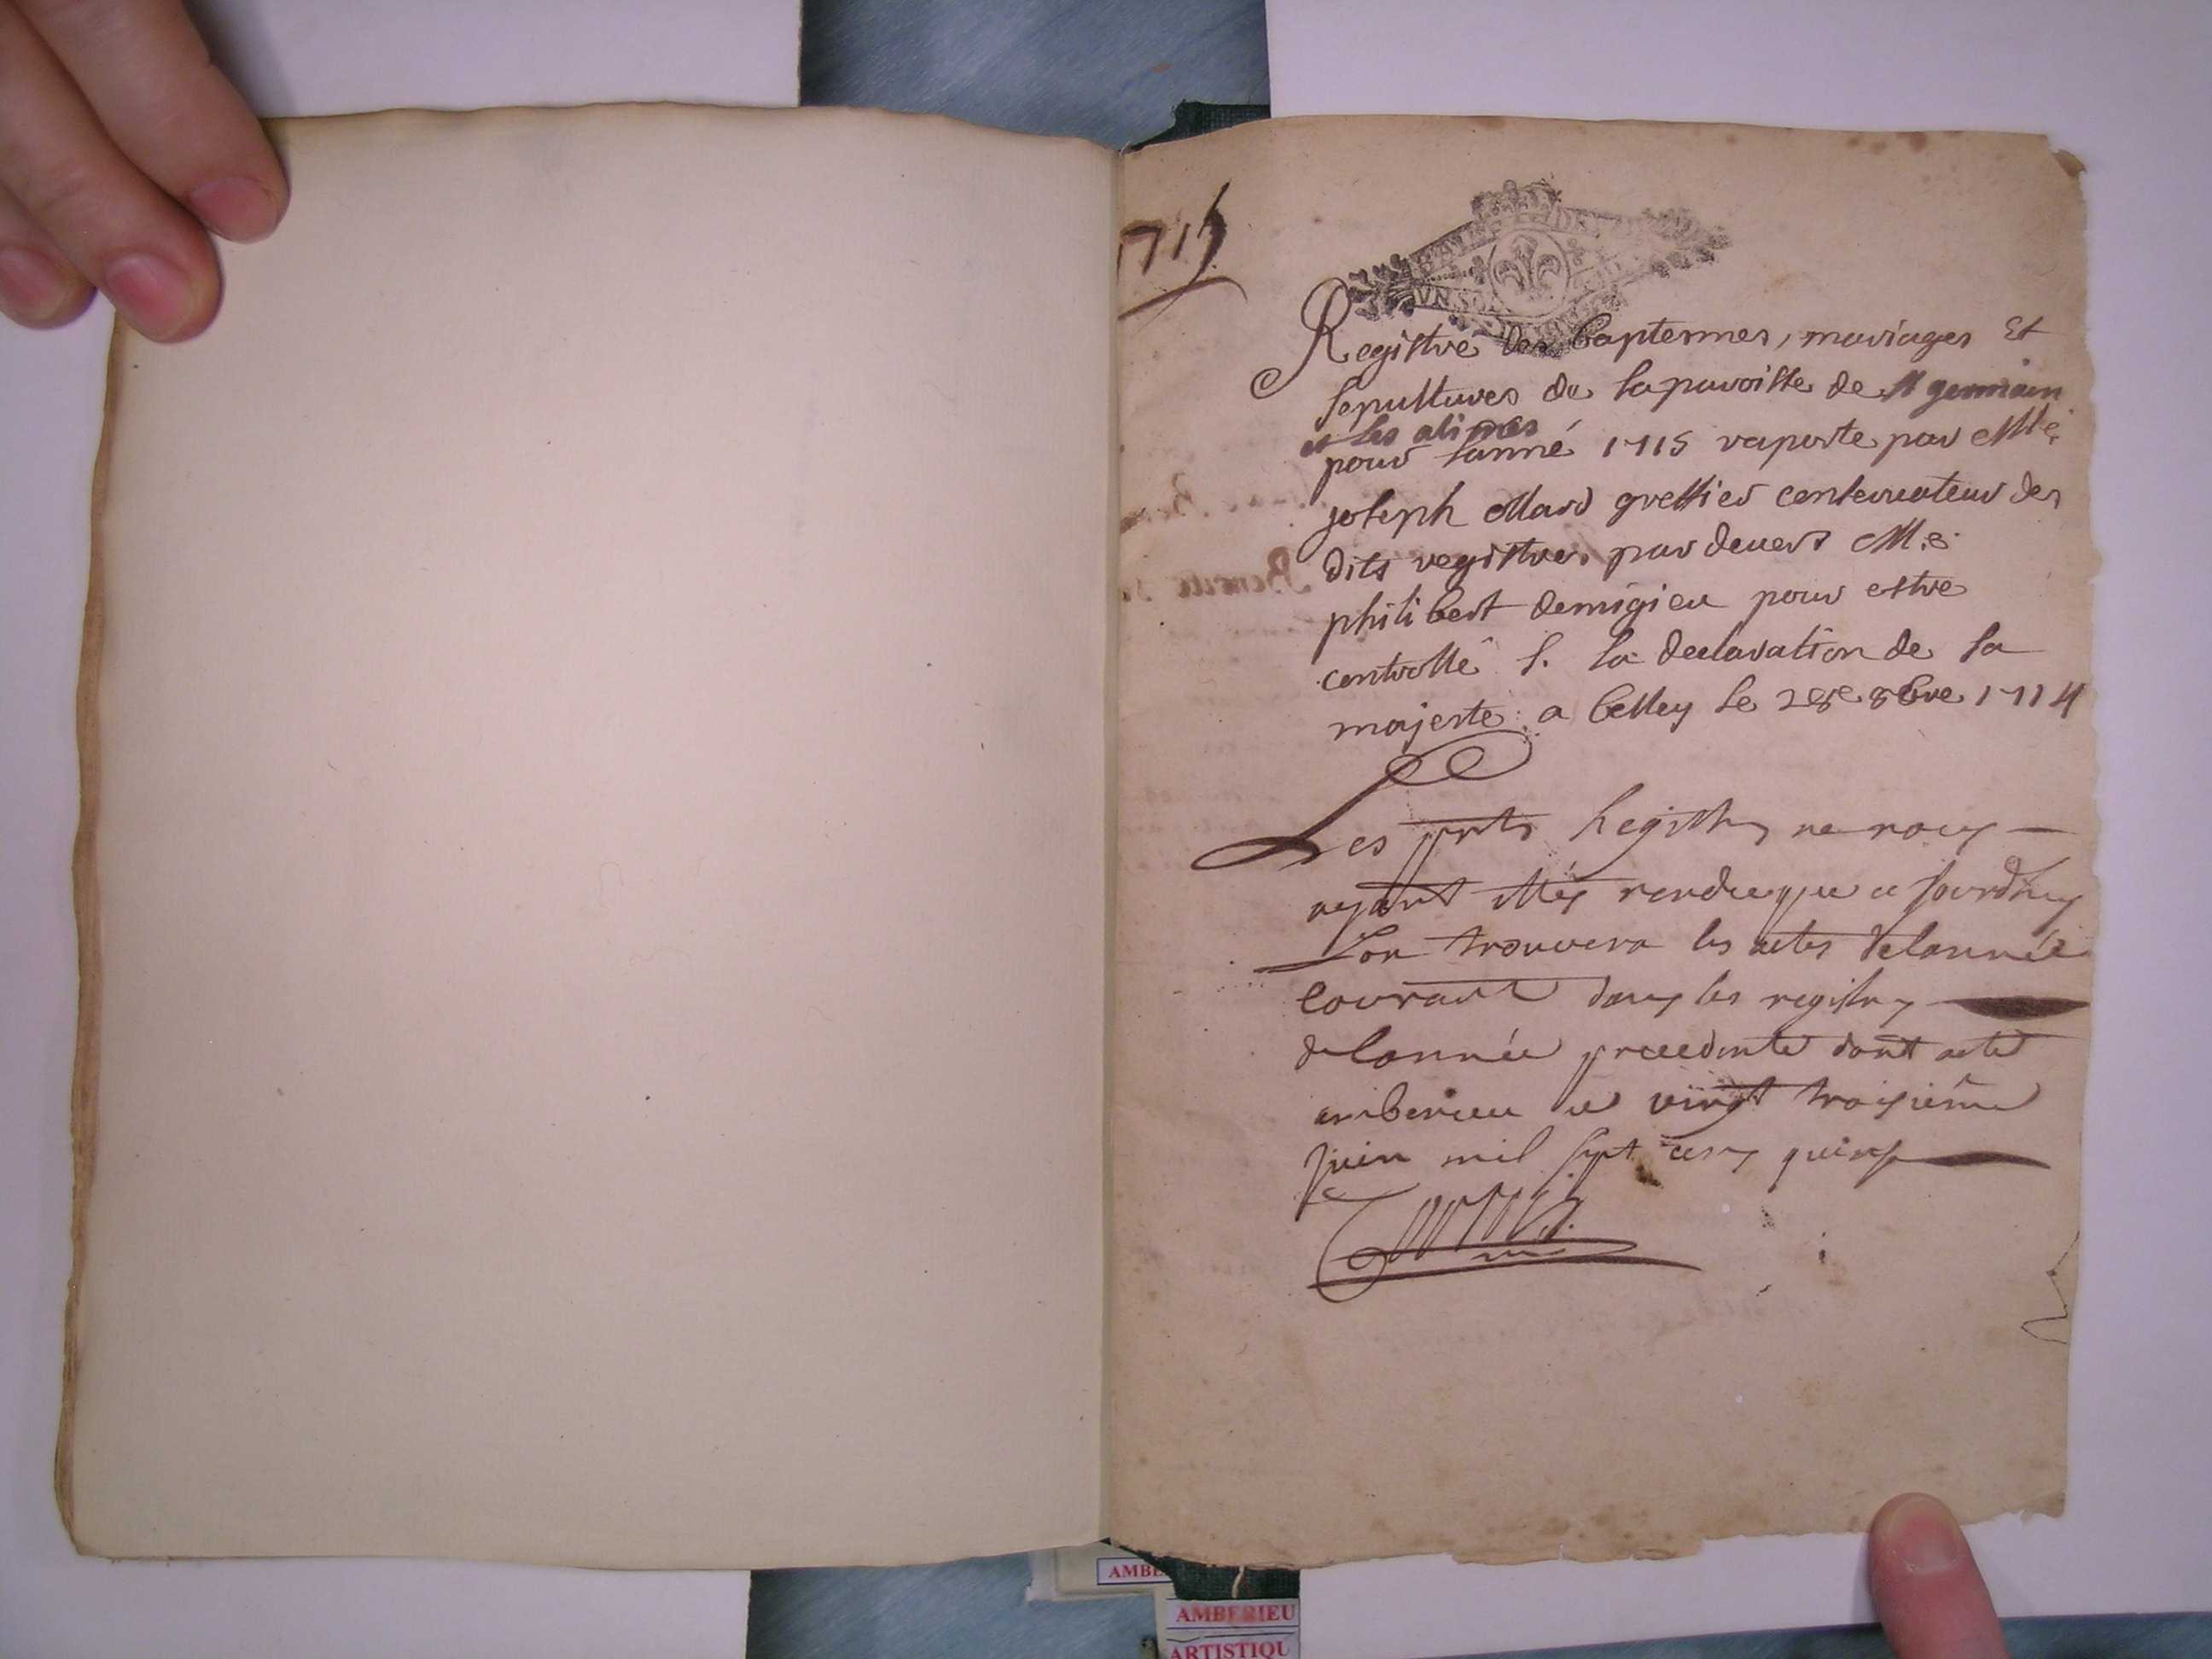 1715
Registre des baptesmes, mariages Et
sepultures de la paroisse de st germain
et les alimes
pour lanné 1715 raporte par Me
joseph Mard greffier conservateur des
dits registres par devers Me
philibert demigieu pour estre
controllé s. la declaration de sa
majeste a belley le 28e 8bre 1714
Les pnts Registres ne nous
ayant estés rendu que ce jourdhuy
Lon trouvera les actes delannée
Courant dans les registres
delannée precedente dont acte
amberieu ce vingt troisième
juin mil sept cens quinze
UN SOL
AMBE
AMBERIEU
ARTISTIQU